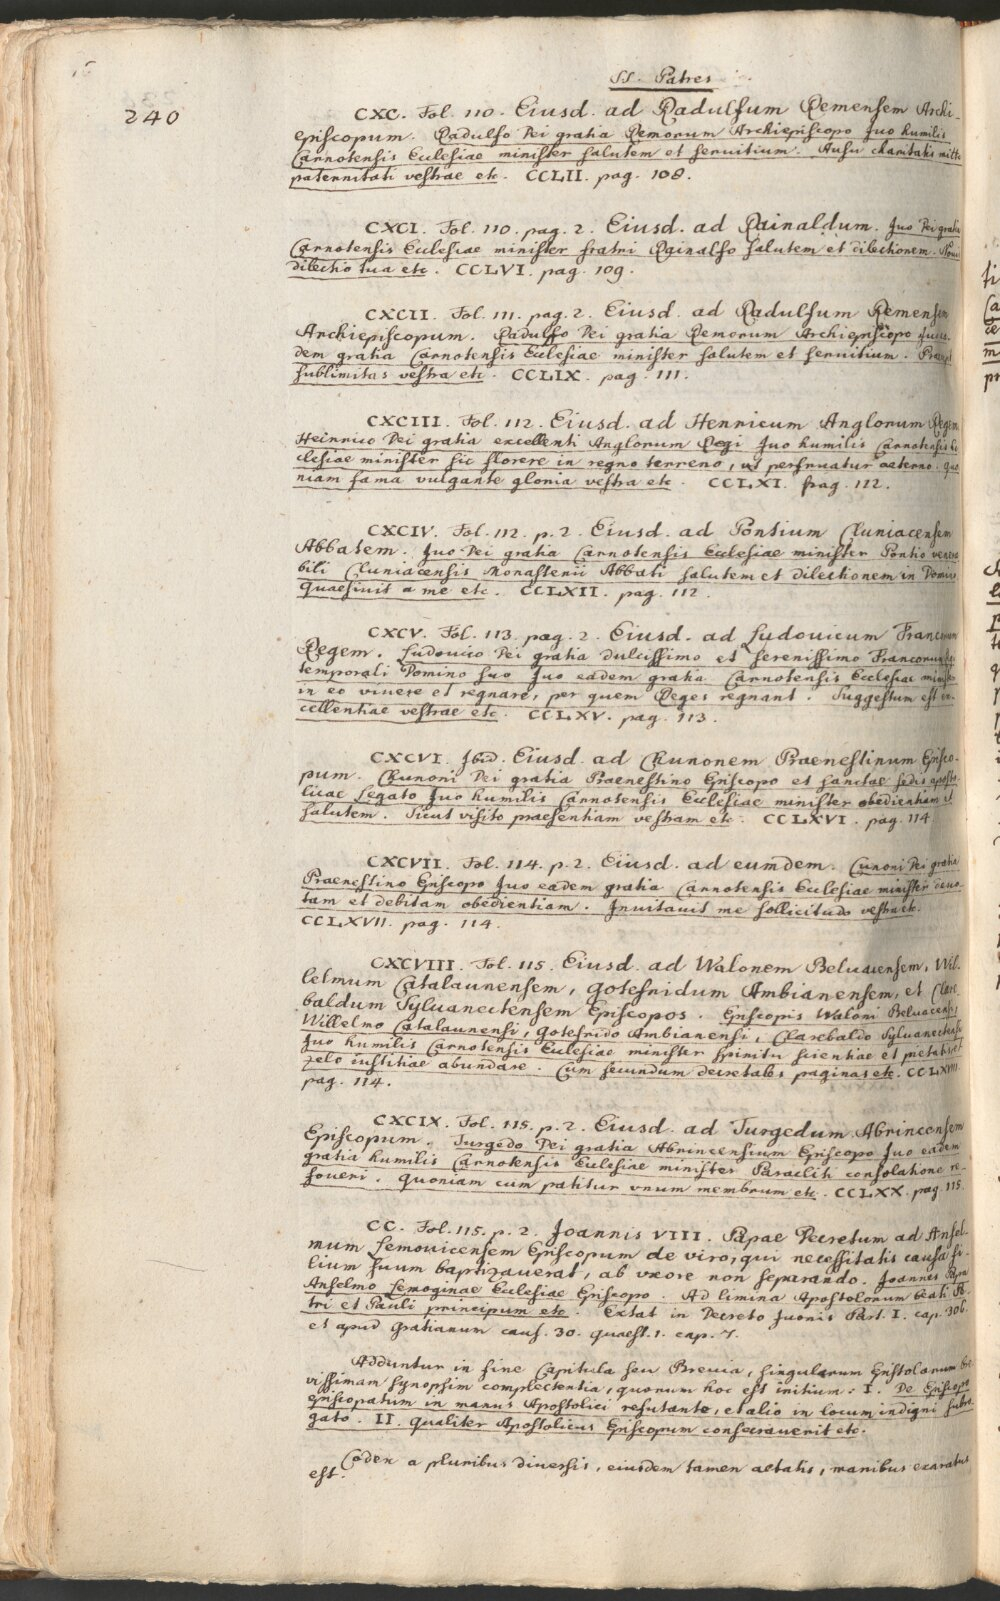 SS. Patres
240
CXC. Fol. 110. Eiusd. ad Radulfum Remensem Archi-
episcopum. Radulfo Dei gratia Remorum Archiepiscopo Juo humilis
Carnotensis Ecclesiae minister salutem et seruitium. Ausu charitatis mitto
paternitati vestrae etc. CCLII. pag. 108.
CXCI. Fol. 110. pag. 2. Eiusd. ad Rainaldum. Juo Dei gratia
Carnotensis Ecclesiae minister fratri Rginalfo salutem et dilectionem. Noui
dilectio tua etc. CCLVI. pag. 109.
CXCII. Fol. 111. pag. 2. Eiusd. ad Radulfum Remensem
Archiepiscopum. Radulfo Dei gratia Remorum Archiepiscopo Juo ea-
dem gratia Carnotensis Ecclesiae minister salutem et seruitium. Praecepit
sublimitas vestra etc. CCLIX. pag. 111.
CXCIII. Fol. 112. Eiusd. ad Henricum Anglorum Regem
Heinrico Dei gratia excellenti Anglorum Regi Juo humilis Carnotensis Ec-
clesiae minister sic florere in regno terreno, ut perfruatur aeterno. Quo-
niam fama vulgante gloria vestra etc. CCLXI. pag. 112.
CXCIV. Fol. 112. p. 2. Eiusd. ad Pontium Cluniacensem
Abbatem. Juo Dei gratia Carnotensis Ecclesiae minister Pontio venera-
bili Cluniacensis Monasterii Abbati salutem et dilectionem in Domino
Quaesiuit a me etc. CCLXII. pag. 112.
CXCV. Fol. 113. pag. 2. Eiusd. ad Ludouicum Francorum
Regem. Ludouico Dei gratia dulcissimo et serenissimo Francorum Regi
temporali Domino suo Juo eadem gratia Carnotensis Ecclesiae minister
in eo viuere et regnare, per quem Reges regnant. Suggestum est ex-
cellentiae vestrae etc. CCLXV. pag. 113.
CXCVI. Ibid. Eiusd. ad Chunonem Praenestinum Episco-
pum. Chunoni Dei gratia Praenestino Episcopo et sanctae sedis aposto-
licae Legato Juo humilis Carnotensis Ecclesiae minister obedientiam et
salutem. Sicut visito praesentiam vestram etc. CCLXVI. pag. 114
CXCVII. Fol. 114. p. 2. Eiusd. ad eumdem. Cunoni Dei gratia
Praenestino Episcopo Juo eadem gratia Carnotensis Ecclesiae minister deuo-
tam et debitam obedientiam. Inuitauit me sollicitudo vestra etc.
CCLXVII. pag. 114.
CXCVIII. Fol. 115. Eiusd. ad Walonem Beluacensem, Wil-
lelmum Catalaunensem, Gotefridum Ambianensem, et Clare-
baldum Syluanectensem Episcopos. Episcopis Waloni Beluacensi,
Willelmo Catalaunensi, Gotefrido Ambianensi, Clarebaldo Syluanectensi
Juo humilis Carnotensis Ecclesiae minister spiritu scientiae et pietatis et
zelo iustitiae abundare. Cum secundum decretales paginas etc. CCLXVIII.
pag. 114.
CXCIX. Fol. 115. p. 2. Eiusd. ad Turgedum Abrincensem
Episcopum. Turgedo Dei gratia Abrincensium Episcopo Juo eadem
gratia humilis Carnotensis Ecclesiae minister Paracliti consolatione re-
foueri. Quoniam cum patitur vnum membrum etc. CCLXX. pag. 115.
CC. Fol. 115. p. 2. Joannis VIII. Papae Decretum ad Ansel-
mum Lemouicensem Episcopum de viro, qui necessitatis causa fi-
lium suum baptizauerat, ab vxore non separando. Joannes Papa
Anselmo Lemoginae Ecclesiae Episcopo. Ad limina Apostolorum beati Pe-
tri et Pauli principum etc. Extat in Decreto Juonis Part. I. cap. 306.
et apud Gratianum caus. 30. quaest. 1. cap. 7.
Adduntur in fine Capitula seu Breuia, singularum Epistolarum bre-
vissimam synopsim complectentia, quorum hoc est initium: I. De Episcopo
episcopatum in manus Apostolici refutante, et alio in locum indigni subro-
gato. II. Qualiter Apostolicus Episcopum consecrauerit etc.
Codex a pluribus diuersis, eiusdem tamen aetatis, manibus exaratus
est.